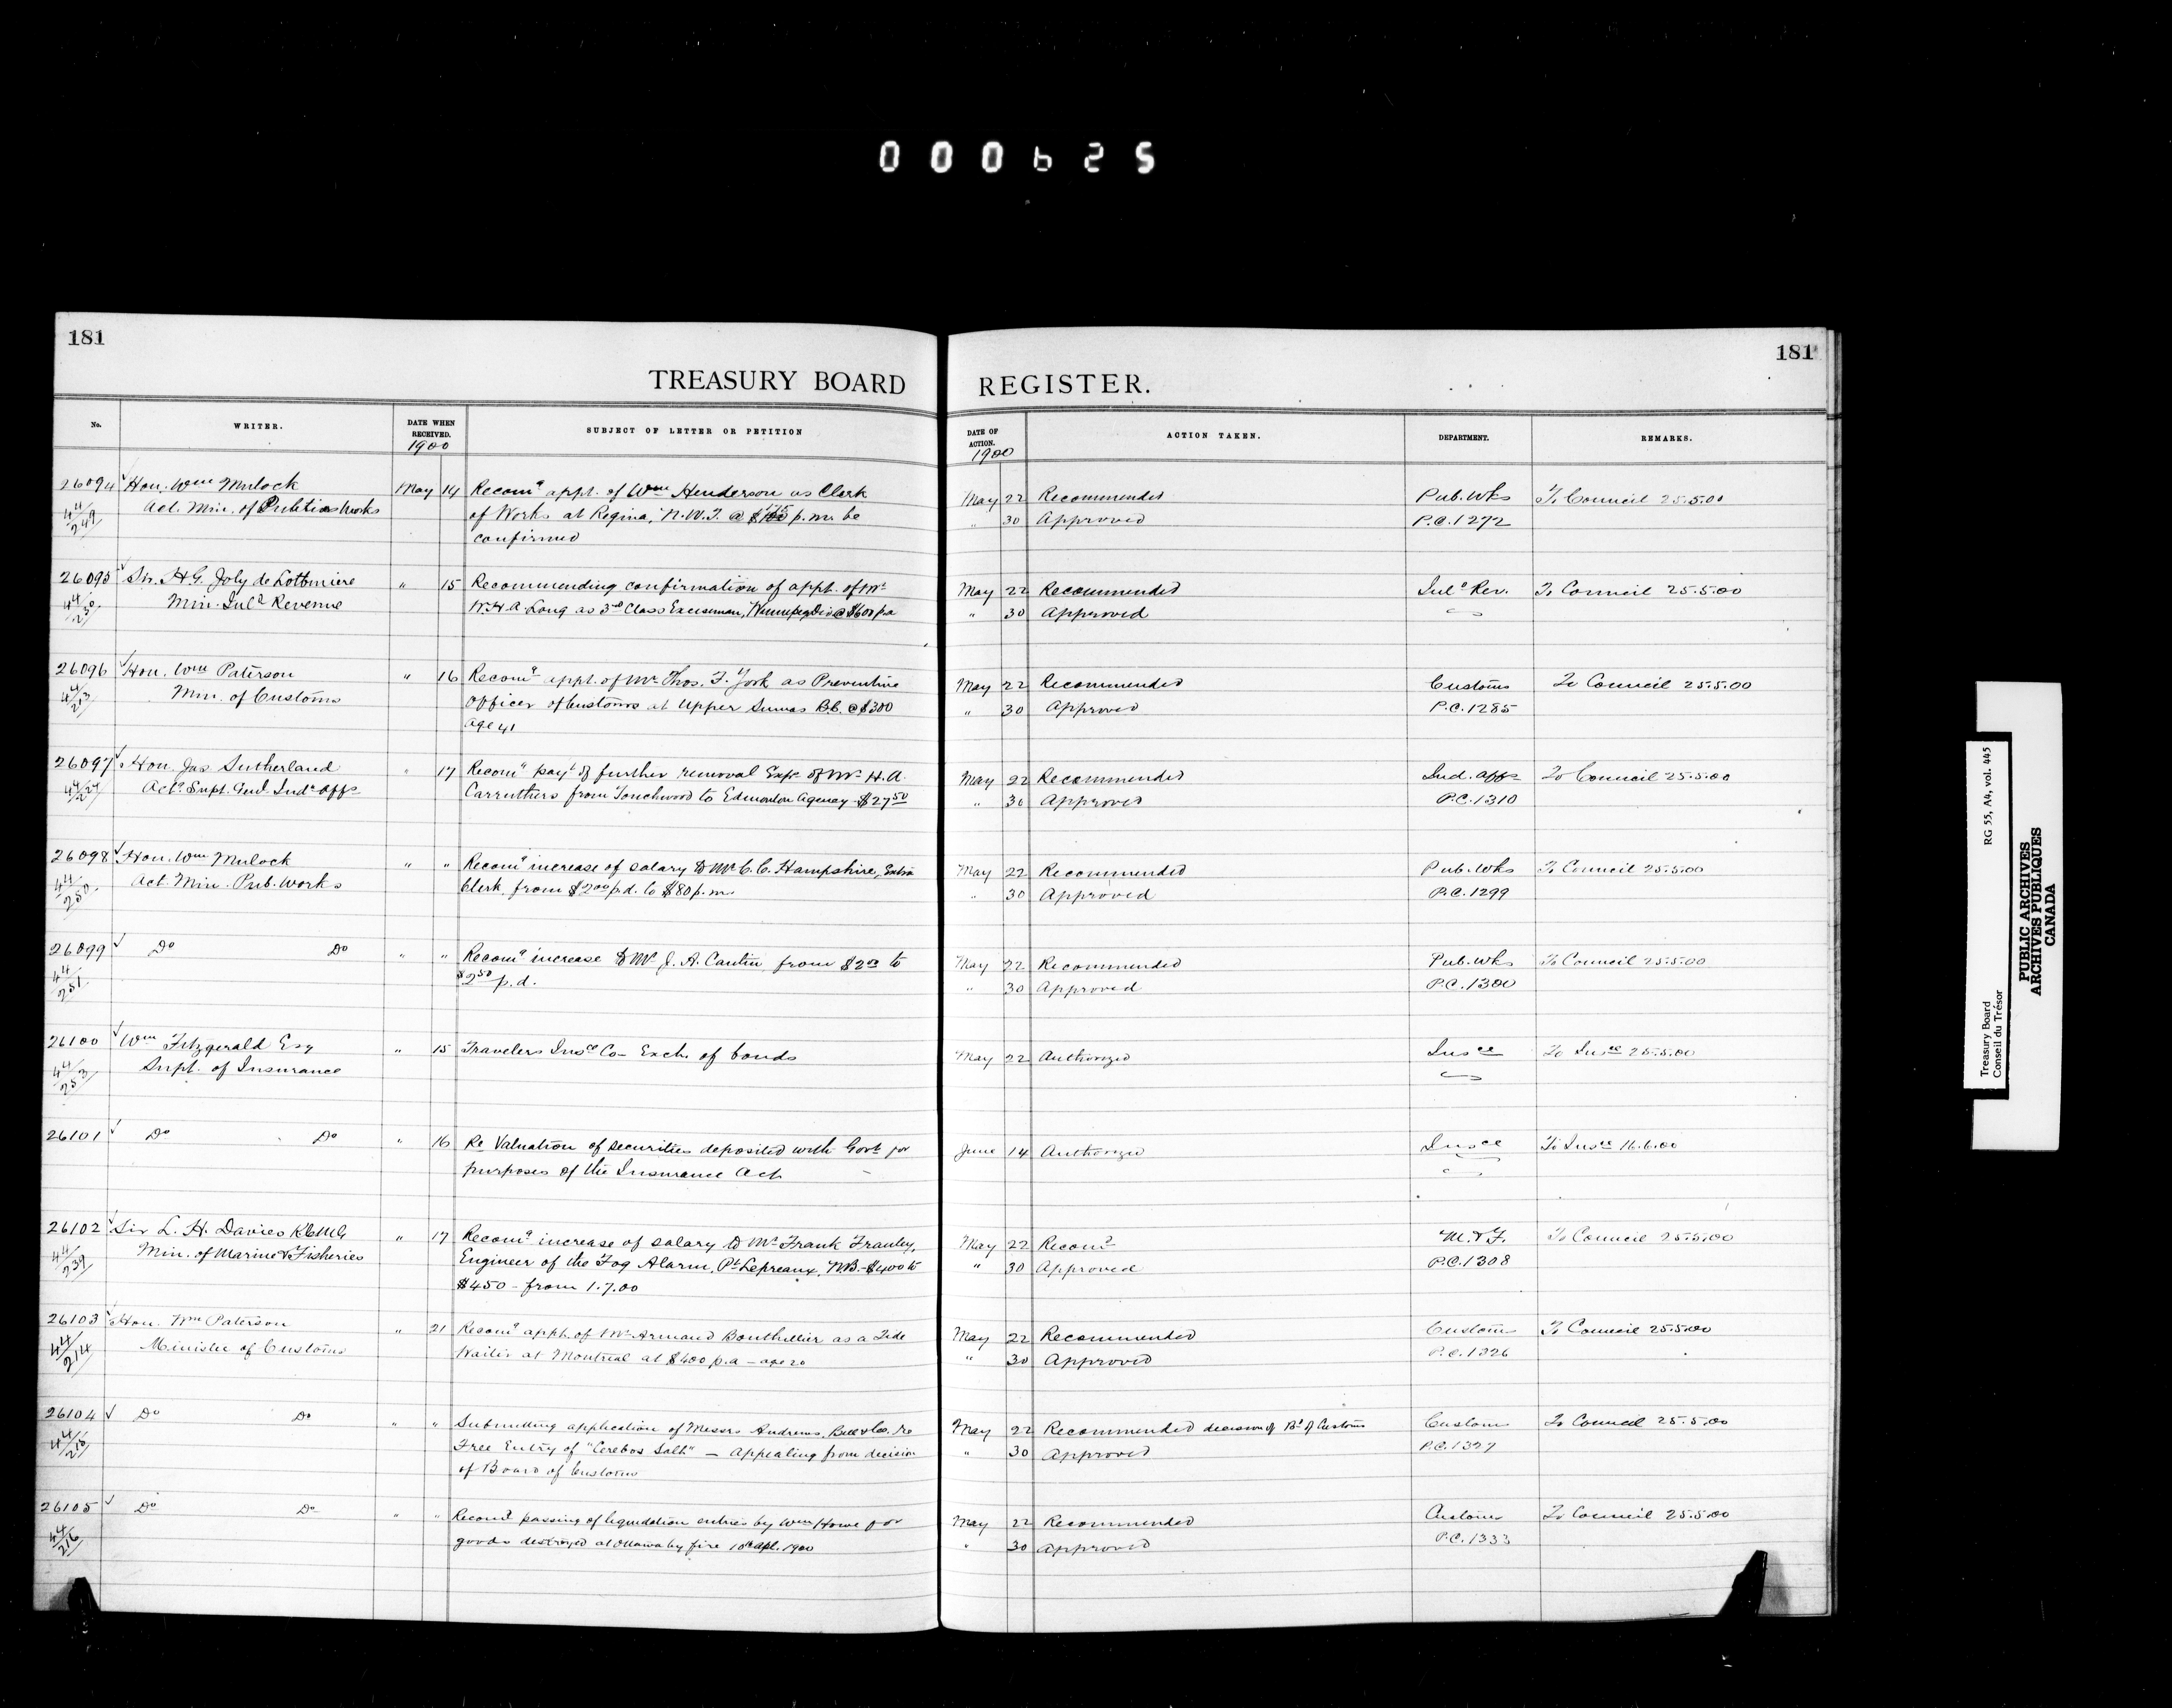 000625
181
181
TREASURY BOARD REGISTER.
No. WRITER. DATE WHEN RECEIVED. SUBJECT OF LETTER OR PETITION DATE OF ACTION. ACTION TAKEN. DEPARTMENT. REMARKS.
1900 1900
26094 Hon. Wm Mulock May 14 Recomg appt. of Wm Henderson as Clerk May 22 Recommended Pub. Wks To Council 25.5.00
44/249 Act. Min. of Public Works of Works at Regina, N.W.T. @ p.m. be " 30 Approved P.C. 1272
confirmed
26095 Sir H.G. Joly de Lotbiniere " 15 Recommending confirmation of appt. of Mr May 22 Recommended Inld Rev. To Council 25.5.00
Min. Inld Revenue W.H.A. Long as 3rd Class Exciseman, Winnipeg Div @ $600 p.a " 30 Approved
26096 Hon. Wm Paterson " 16 Recomg appt. of Mr Thos. F. York as Preventive May 22 Recommended Customs To Council 25.5.00
44/213 Min. of Customs Officer of Customs at Upper Sumas B.C. @ $300 " 30 Approved P.C. 1285
age 41
26097 Hon. Jas Sutherland " 17 Recomg payt of further removal Exps of Mr H.A. May 22 Recommended Ind. affs To Council 25.5.00
Actg Supt. Genl Indn Affs Carruthers from Touchwood to Edmonton Agency $27.50 " 30 Approved P.C. 1310
26098 Hon. Wm Mulock " " Recomg increase of salary to Mr C.C. Hampshire, Extra May 22 Recommended Pub. Wks To Council 25.5.00
44/250 Act. Min. Pub. Works Clerk, from $2.00 p.d. to $80 p.m. " 30 Approved P.C. 1299
26099 Do Do " " Recomg increase to Mr J.A. Cantin from $2.00 to May 22 Recommended Pub. Wks To Council 25.5.00
44/251 $2.50 p.d. " 30 Approved P.C. 1300
26100 Wm Fitzgerald Esq " 15 Travelers Insce Co - Exch. of bonds May 22 Authorized Insce To Insce 25.5.00
44/253 Supt. of Insurance
26101 Do Do " 16 Re Valuation of securities deposited with Govt for June 14 Authorized Insce To Insce 16.6.00
purposes of the Insurance Act
26102 Sir L.H. Davies KCMG " 17 Recomg increase of salary to Mr Frank Franley, May 22 Recomd M.&F. To Council 25.5.00
44/239 Min. of Marine & Fisheries Engineer of the Fog Alarm, Pt Lepreaux, N.B. - $400 to " 30 Approved P.C. 1308
$450 - from 1.7.00
26103 Hon. Wm Paterson " 21 Recomg appt. of Mr Armand Bouthillier as a Tide May 22 Recommended Customs To Council 25.5.00
44/214 Minister of Customs Waiter at Montreal at $400 p.a - age 20 " 30 Approved P.C. 1326
26104 Do Do " " Submitting application of Messrs Andrews, Bell & Co. re May 22 Recommended decision of Bd of Customs Customs To Council 25.5.00
44/215 Free Entry of "Cerebos Salt" - Appealing from decision " 30 Approved P.C. 1327
of Board of Customs
26105 Do Do " " Recomg passing of liquidation entries by Wm Howe for May 22 Recommended Customs To Council 25.5.00
44/216 goods destroyed at Ottawa by fire 10th Apl. 1900 " 30 Approved P.C. 1333
Treasury Board RG 55, A4, vol. 445
Conseil du Trésor
PUBLIC ARCHIVES
ARCHIVES PUBLIQUES
CANADA